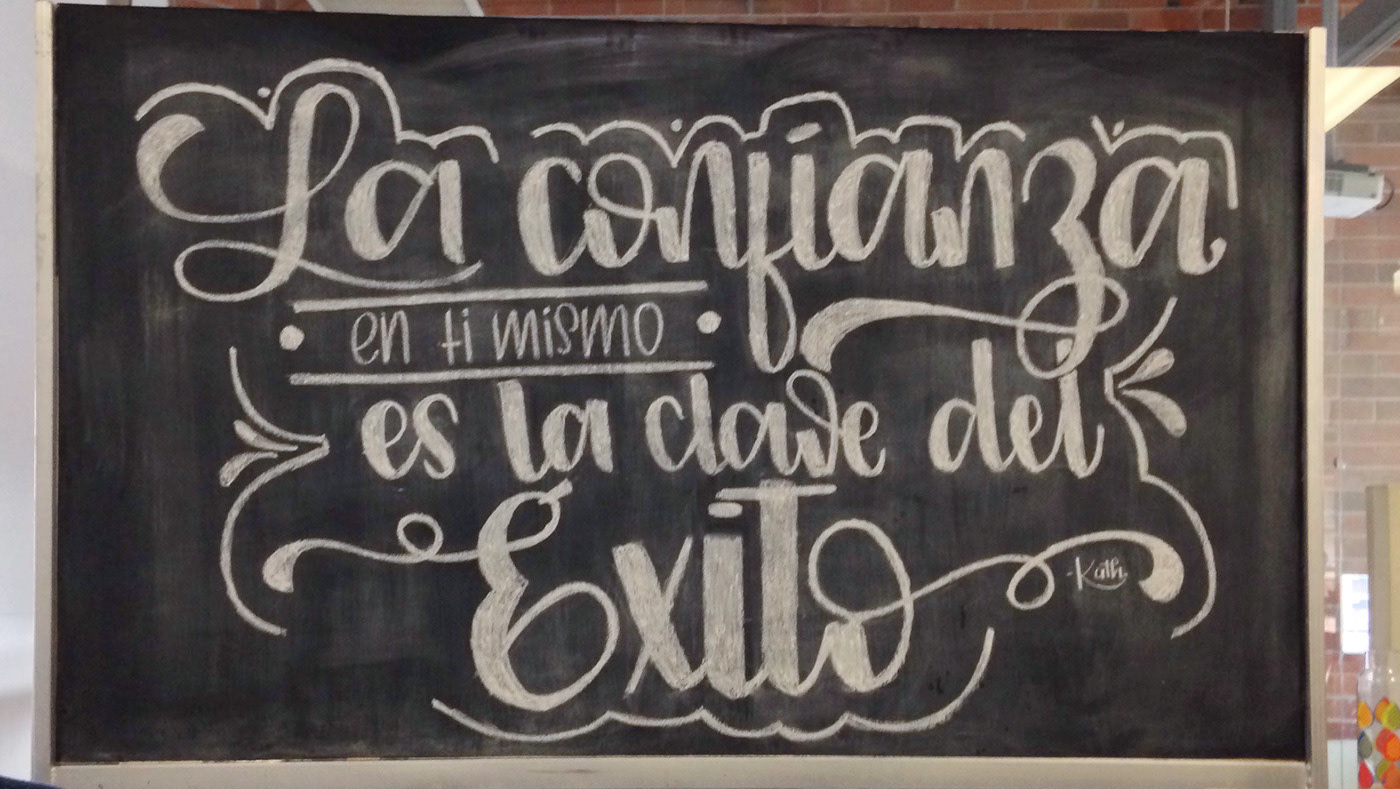 La confianza
en ti mismo
es la clave del
Éxito
-Kath